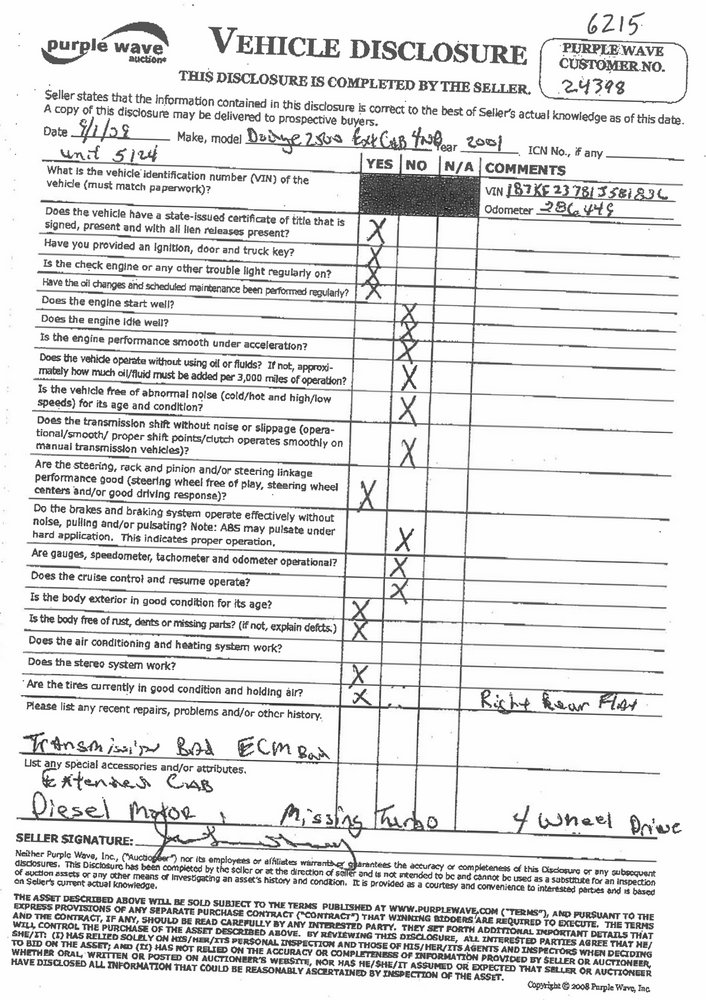 6215
purple wave
auction
VEHICLE DISCLOSURE
PURPLE WAVE
CUSTOMER NO.
24398
THIS DISCLOSURE IS COMPLETED BY THE SELLER.
Seller states that the information contained in this disclosure is correct to the best of Seller's actual knowledge as of this date.
A copy of this disclosure may be delivered to prospective buyers.
Date 9/1/08 Make, model Dodge 2500 Ext CAB 4WD Year 2001 ICN No., if any
Unit 5124
YES NO N/A COMMENTS
What is the vehicle identification number (VIN) of the
vehicle (must match paperwork)?
VIN 1B7KF23781J581836
Odometer 286,449
Does the vehicle have a state-issued certificate of title that is
signed, present and with all lien releases present? X
Have you provided an ignition, door and truck key? X
Is the check engine or any other trouble light regularly on? X
Have the oil changes and scheduled maintenance been performed regularly? X
Does the engine start well? X
Does the engine idle well? X
Is the engine performance smooth under acceleration? X
Does the vehicle operate without using oil or fluids? If not, approxi-
mately how much oil/fluid must be added per 3,000 miles of operation? X
Is the vehicle free of abnormal noise (cold/hot and high/low
speeds) for its age and condition? X
Does the transmission shift without noise or slippage (opera-
tional/smooth/ proper shift points/clutch operates smoothly on
manual transmission vehicles)? X
Are the steering, rack and pinion and/or steering linkage
performance good (steering wheel free of play, steering wheel
centers and/or good driving response)? X
Do the brakes and braking system operate effectively without
noise, pulling and/or pulsating? Note: ABS may pulsate under
hard application. This indicates proper operation. X
Are gauges, speedometer, tachometer and odometer operational? X
Does the cruise control and resume operate? X
Is the body exterior in good condition for its age? X
Is the body free of rust, dents or missing parts? (if not, explain defcts.) X
Does the air conditioning and heating system work?
Does the stereo system work? X
Are the tires currently in good condition and holding air? X Right Rear Flat
Please list any recent repairs, problems and/or other history.
Transmission Bad ECM Bad
List any special accessories and/or attributes.
Extended CAB
Diesel Motor, Missing Turbo 4 Wheel Drive
SELLER SIGNATURE:
Neither Purple Wave, Inc., ("Auctioneer") nor its employees or affiliates warrants or guarantees the accuracy or completeness of this Disclosure or any subsequent
disclosures. This Disclosure has been completed by the seller or at the direction of seller and is not intended to be and cannot be used as a substitute for an inspection
of auction assets or any other means of investigating an asset's history and condition. It is provided as a courtesy and convenience to interested parties and is based
on Seller's current actual knowledge.
THE ASSET DESCRIBED ABOVE WILL BE SOLD SUBJECT TO THE TERMS PUBLISHED AT WWW.PURPLEWAVE.COM ("TERMS"), AND PURSUANT TO THE
EXPRESS PROVISIONS OF ANY SEPARATE PURCHASE CONTRACT ("CONTRACT") THAT WINNING BIDDERS ARE REQUIRED TO EXECUTE. THE TERMS
AND THE CONTRACT, IF ANY, SHOULD BE READ CAREFULLY BY ANY INTERESTED PARTY. THEY SET FORTH ADDITIONAL IMPORTANT DETAILS THAT
WILL CONTROL THE PURCHASE OF THE ASSET DESCRIBED ABOVE. BY REVIEWING THIS DISCLOSURE, ALL INTERESTED PARTIES AGREE THAT HE/
SHE/IT: (I) HAS RELIED SOLELY ON HIS/HER/ITS PERSONAL INSPECTION AND THOSE OF HIS/HER/ITS AGENTS AND INSPECTORS WHEN DECIDING
TO BID ON THE ASSET; AND (II) HAS NOT RELIED ON THE ACCURACY OR COMPLETENESS OF INFORMATION PROVIDED BY SELLER OR AUCTIONEER,
WHETHER ORAL, WRITTEN OR POSTED ON AUCTIONEER'S WEBSITE, NOR HAS HE/SHE/IT ASSUMED OR EXPECTED THAT SELLER OR AUCTIONEER
HAVE DISCLOSED ALL INFORMATION THAT COULD BE REASONABLY ASCERTAINED BY INSPECTION OF THE ASSET.
Copyright © 2008 Purple Wave, Inc.